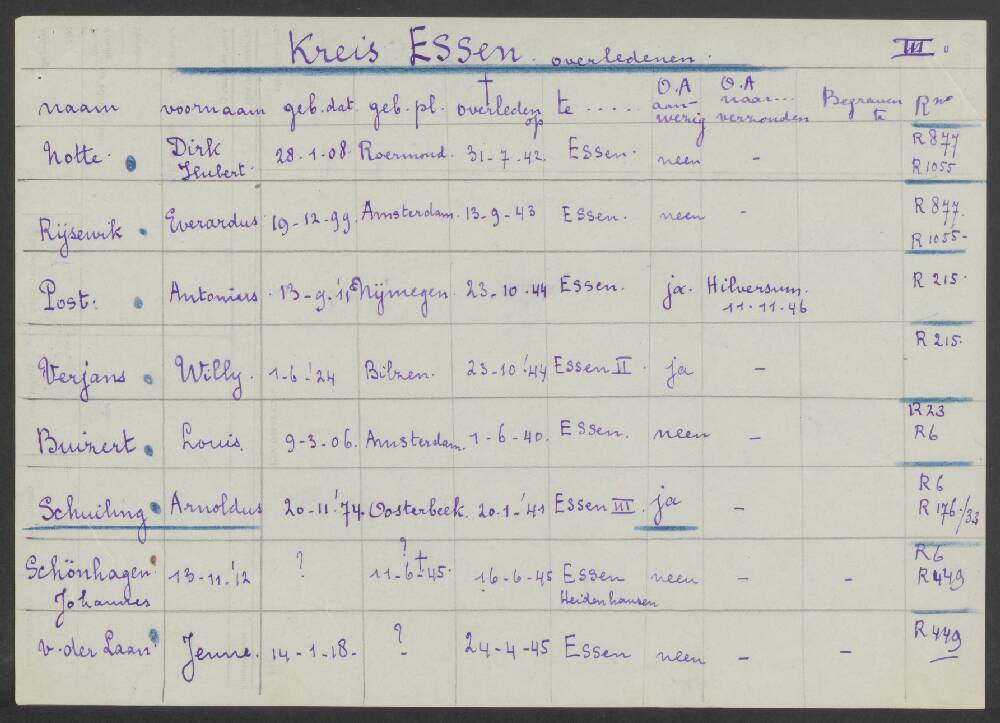 Kreis ESSEN. overledenen. III.
naam voornaam geb.dat. geb.pl. † overleden op te ..... O.A aan-wezig O.A naar... verzonden Begraven te R no
Notte. Dirk Hubert. 28.1.08. Roermond. 31-7-42. Essen. neen - R877 R1055
Rijsewik. Everardus 19-12-99. Amsterdam. 13-9-43 Essen. neen - R877. R1055-
Post. Antonius. 13-9.'15 Nijmegen. 23-10.44 Essen. ja. Hilversum. 11.11.46 R 215.
Verjans Willy. 1-6-'24 Bilzen. 23-10'44 Essen II ja - R 215.
Buizert. Louis. 9-3-06. Amsterdam. 1-6-40. Essen. neen - R23 R6
Schuiling Arnoldus 20-11-'74. Oosterbeek. 20.1-'41 Essen III. ja - R6 R176./33
Schönhagen. Johannes 13-11-'12 ? ? 11-6†-45. 16-6-45 Essen Heidenhausen neen - - R6 R449
v.der Laan. Jenne. 14-1-18- ? 24-4-45 Essen neen - - R449